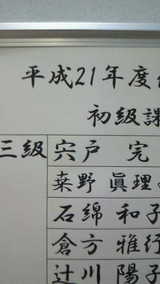 平成21年度
初級課
三級 宍戸 完
桒野 眞理
石綿 和子
倉方 雅行
辻川 陽子